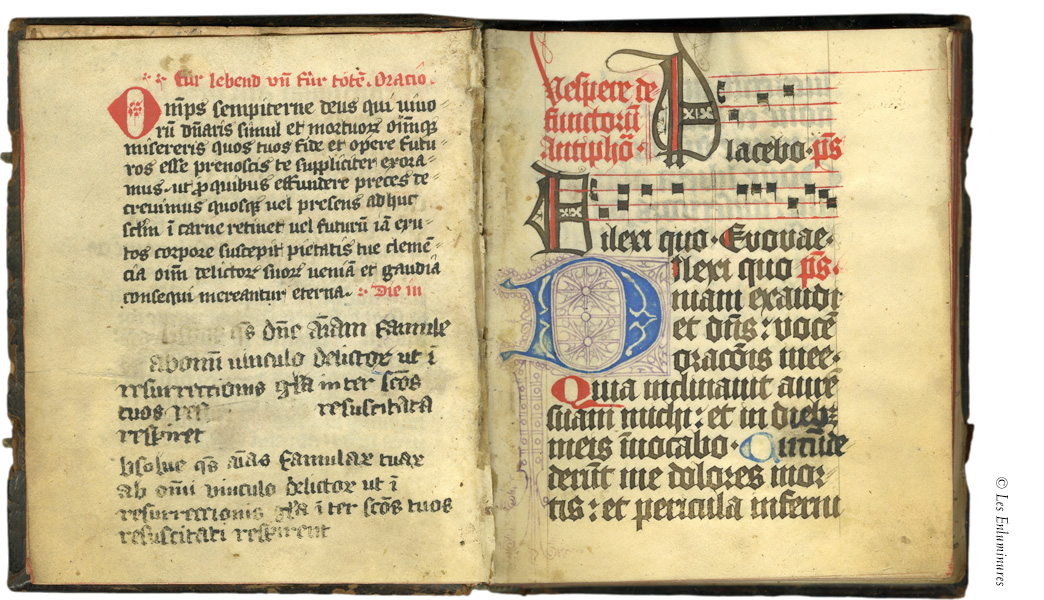 Für lebend vn̄ für tötē. Oracio.
Om̄ps sempiterne deus qui uiuo
rū dn̄aris simul et mortuoꝝ om̄iūqꝫ
misereris quos tuos fide et opere futu
ros esse prenoscis te suppliciter exora-
mus. ut ꝓ quibus effundere preces de
creuimus quosqꝫ uel presens adhuc
sclm̄ ī carne retinet uel futurū iā exu
tos corpore suscepit pietatis tue clemē
cia oīm delictoꝝ suoꝝ ueniā et gaudia
consequi mereantur eterna. Die in
qs dn̄e aīam famule
ab omī uinculo delictoꝝ ut ī
resurrectionis gl̄a inter sc̄os
tuos resuscitata
respiret
bsolue qs aīas famulaꝝ tuaꝝ
ab omī vinculo delictoꝝ ut ī
resurrectionis gl̄a īter sc̄os tuos
resuscitati respirent
Vespere de
functorū
Antiphō
Placebo. ps̄
Dilexi quo. Evovae.
Dilexi quo ps̄.
niam exaudi
et dn̄s: vocē
oracōis mee.
Quia inclinauit aurē
suam michi: et in diebꝫ
meis īuocabo. Circūde
derūt me dolores mor
tis: et pericula inferni
© Les Enluminures